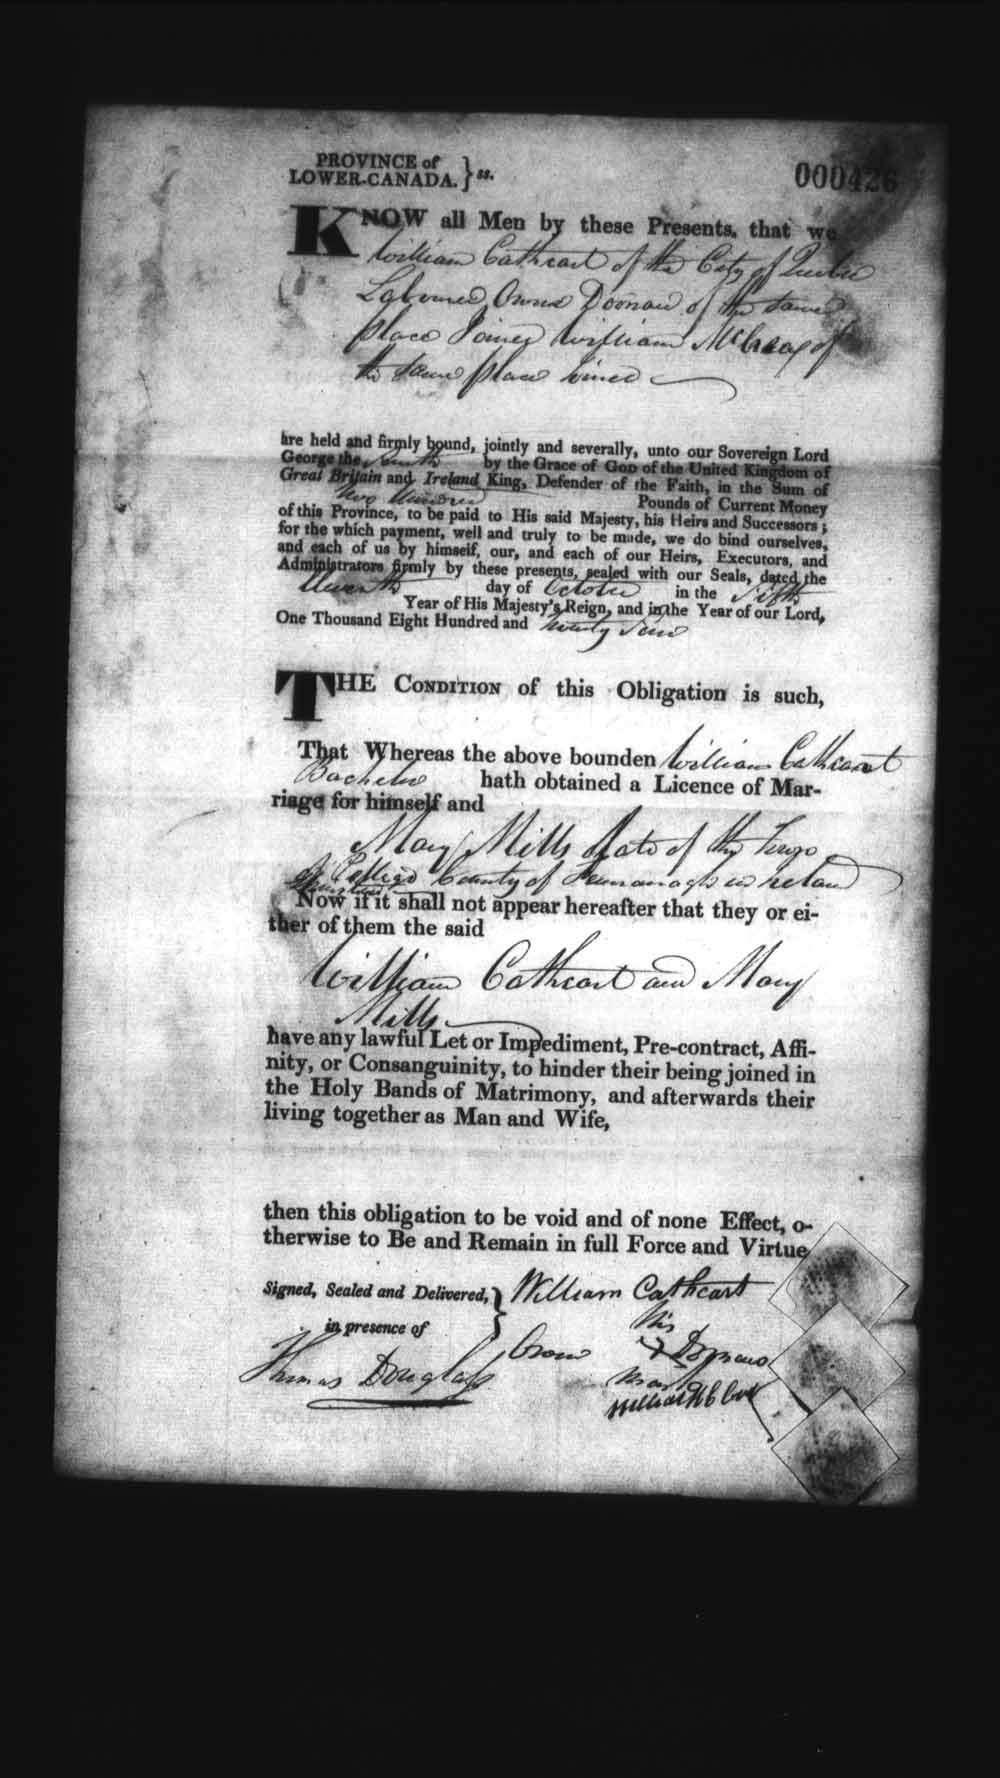 PROVINCE of
LOWER-CANADA. } ss.
000426
KNOW all Men by these Presents, that we
William Cathcart of the City of Quebec
Labourer Owen Doonan of the same
place Joiner William McCreay of
the same place
are held and firmly bound, jointly and severally, unto our Sovereign Lord
George the Fourth by the Grace of GOD of the United Kingdom of
Great Britain and Ireland King, Defender of the Faith, in the Sum of
Two Hundred Pounds of Current Money
of this Province, to be paid to His said Majesty, his Heirs and Successors ;
for the which payment, well and truly to be made, we do bind ourselves,
and each of us by himself, our, and each of our Heirs, Executors, and
Administrators firmly by these presents, sealed with our Seals, dated the
day of October in the Fifth
Year of His Majesty's Reign, and in the Year of our Lord,
One Thousand Eight Hundred and Twenty Four
THE CONDITION of this Obligation is such,
That Whereas the above bounden William Cathcart
Bachelor hath obtained a Licence of Mar-
riage for himself and
Mary Mills late of the
of County of Fermanagh in Ireland
Spinster
Now if it shall not appear hereafter that they or ei-
ther of them the said
William Cathcart and Mary
Mills
have any lawful Let or Impediment, Pre-contract, Affi-
nity, or Consanguinity, to hinder their being joined in
the Holy Bands of Matrimony, and afterwards their
living together as Man and Wife,
then this obligation to be void and of none Effect, o-
therwise to Be and Remain in full Force and Virtue
Signed, Sealed and Delivered, } William Cathcart
in presence of
his
Owen X Doonan
mark
Thomas Douglass
William